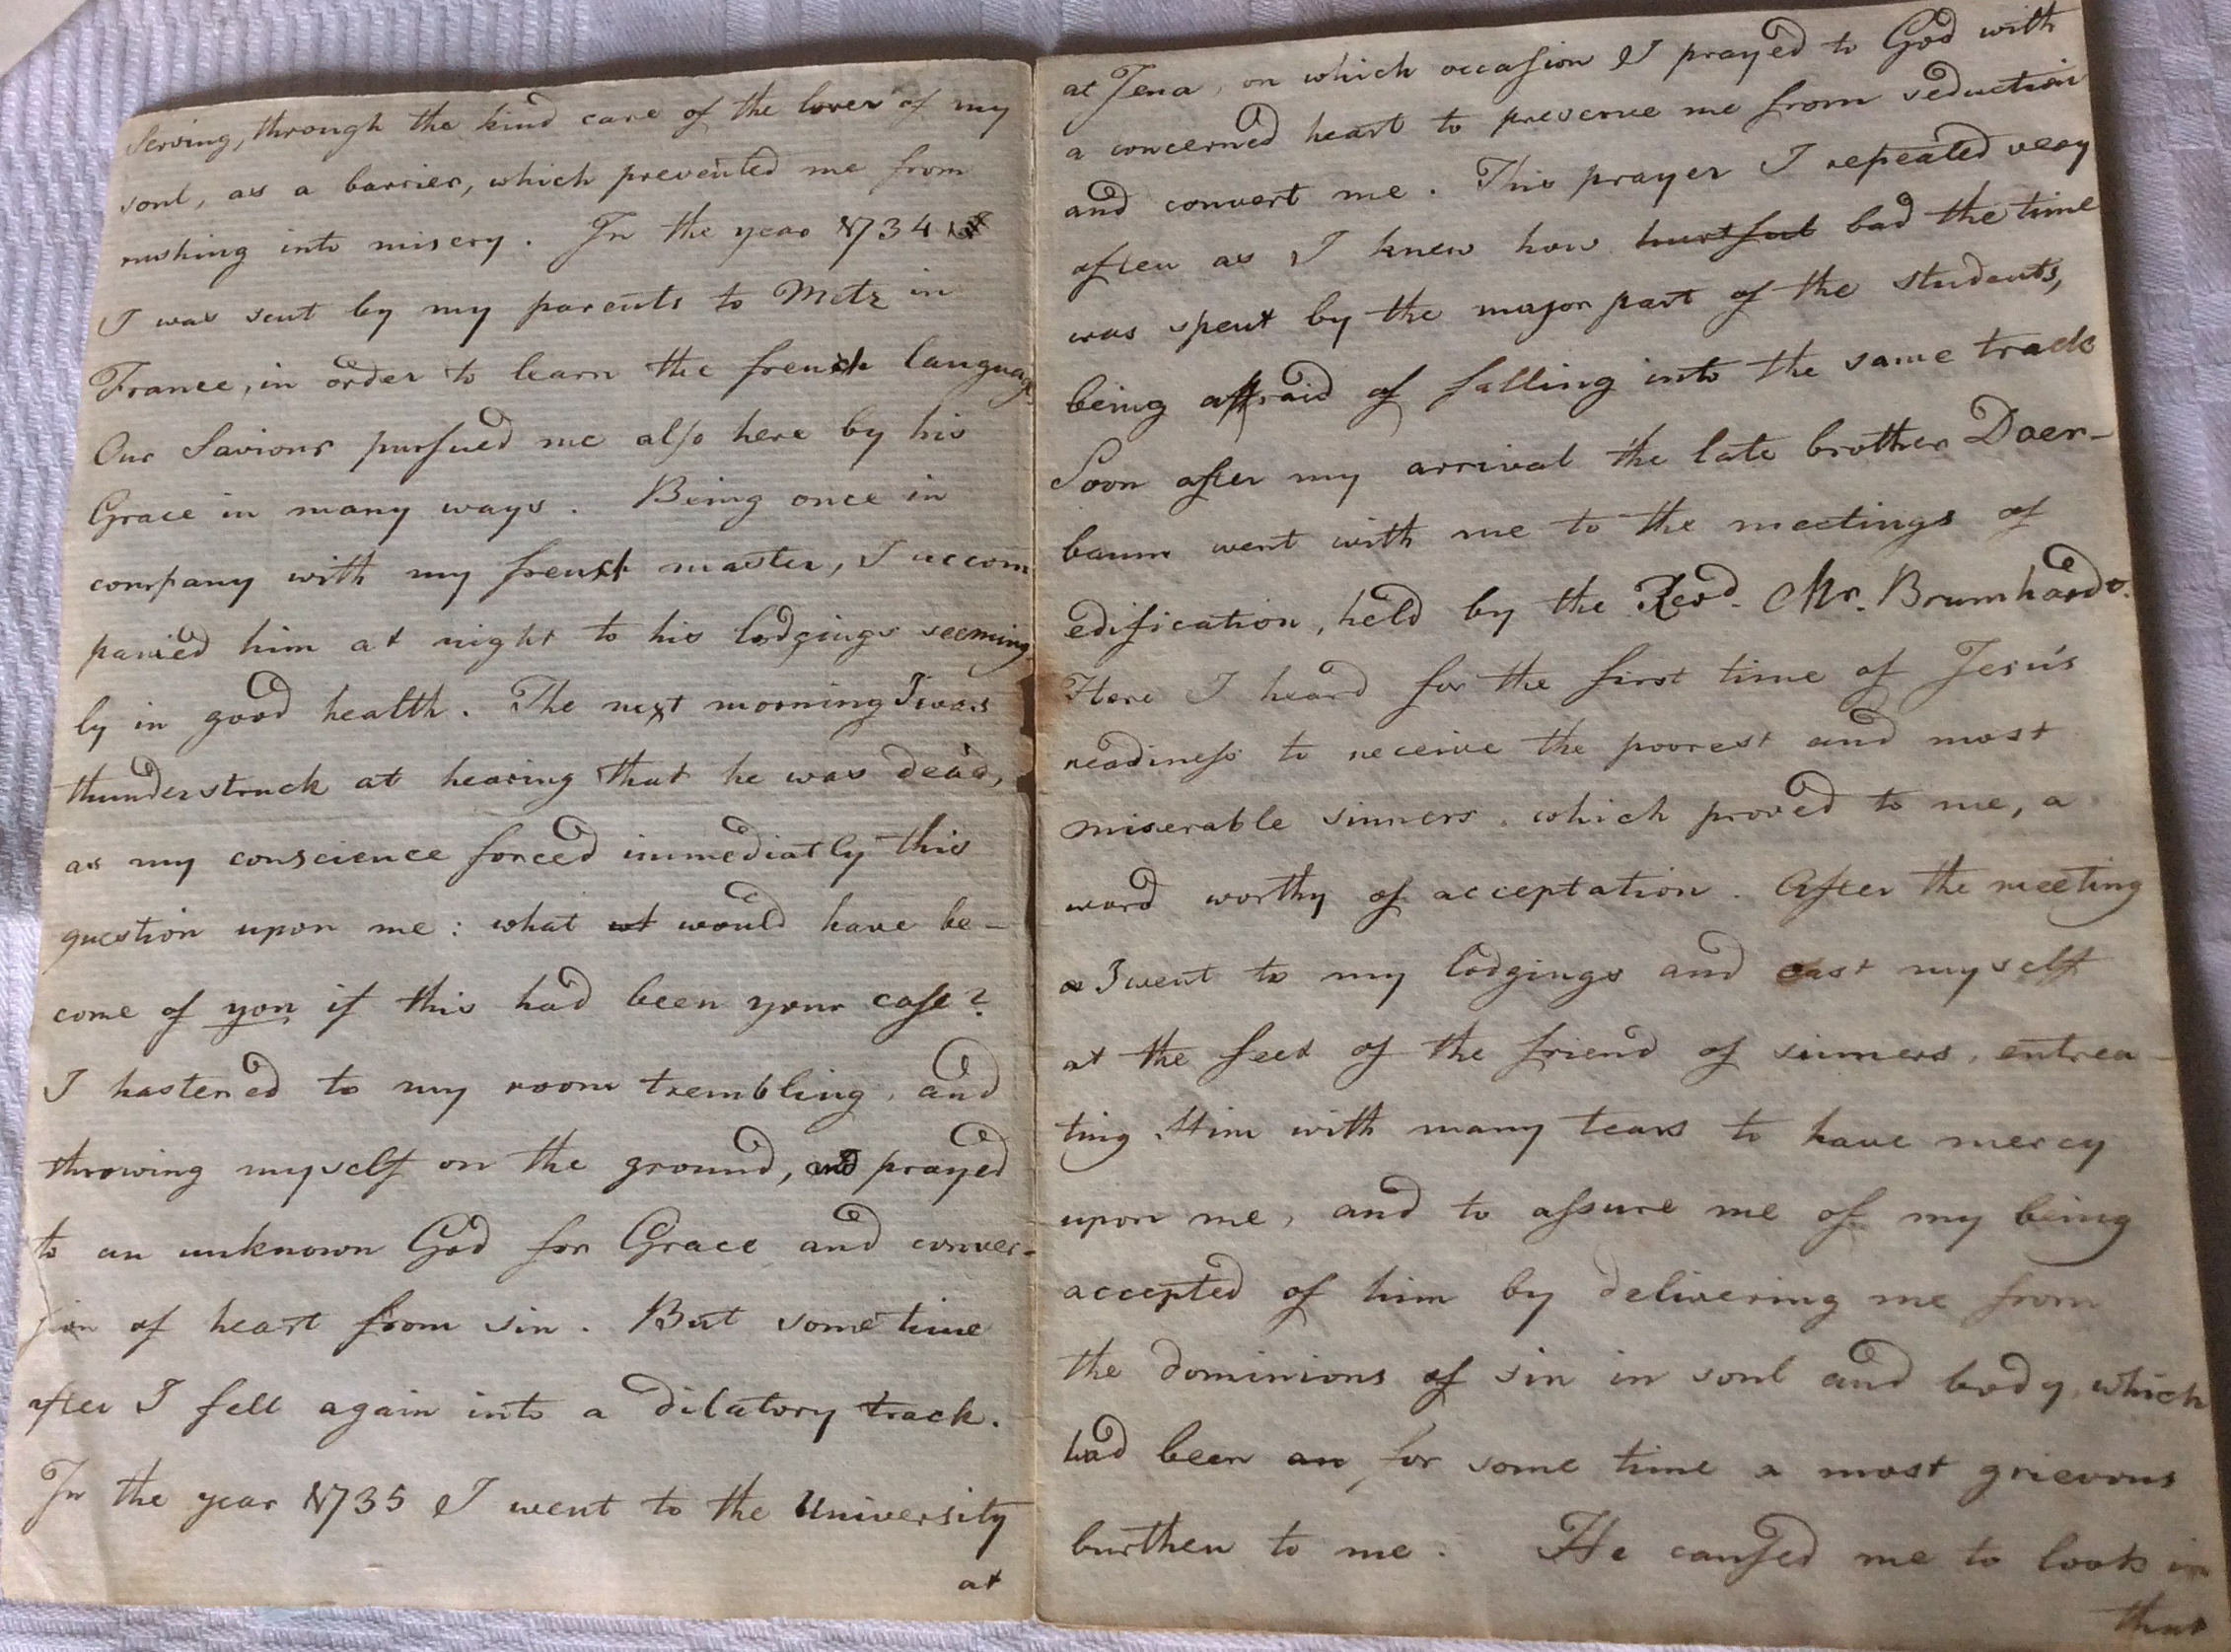 serving, through the kind care of the lover of my
soul, as a barrier, which prevented me from
rushing into misery. In the year 1734
I was sent by my parents to Metz in
France, in order to learn the french language.
Our Saviour purſued me alſo here by his
Grace in many ways. Being once in
company with my french master, I accom
panied him at night to his lodgings seeming
ly in good health. The next morning I was
thunderstruck at hearing that he was dead,
as my conscience forced immediatly this
question upon me: what wt would have be-
come of you if this had been your caſe?
I hastened to my room trembling, and
throwing myself on the ground, and prayed
to an unknown God for Grace and conver-
ſion of heart from sin. But some time
after I fell again into a dilatory track.
In the year 1735 I went to the University
at
at Jena, on which occaſion I prayed to God with
a concerned heart to preserve me from seduction
and convert me. This prayer I repeated very
often as I knew how hurtful bad the time
was spent by the major part of the students,
being affraid of falling into the same track
Soon after my arrival the late brother Doer-
baum went with me to the meetings of
edification, held by the Revd. Mr. Brumhard.
Here I heard for the first time of Jesu's
readineſs to receive the poorest and most
miserable sinners, which proved to me, a
word worthy of acceptation. After the meeting
I went to my lodgings and cast myself
at the feet of the friend of sinners, entrea-
ting Him with many tears to have mercy
upon me, and to aſsure me of my being
accepted of him by delivering me from
the dominions of sin in soul and body, which
had been an for some time a most grievous
burthen to me. He cauſed me to look in
that